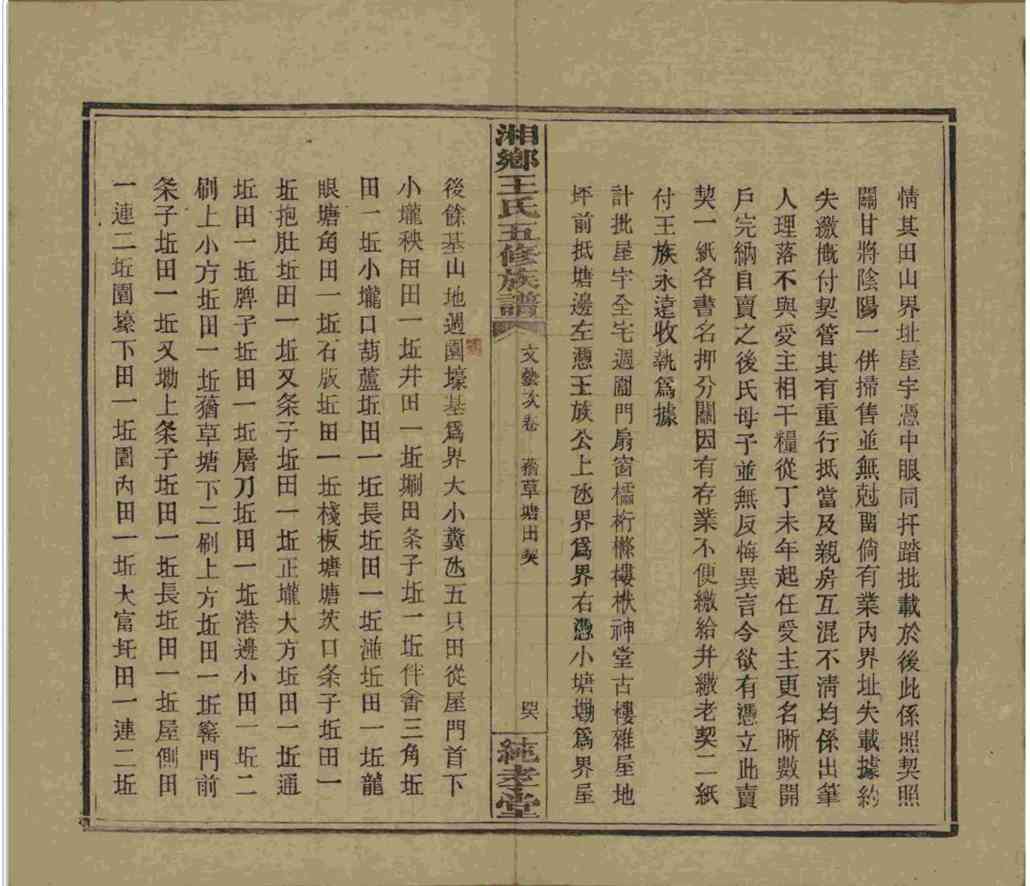 情其田山界址屋宇憑中眼同扦踏批載於後此係照契照
關甘將陰陽一併掃售並無尅留倘有業內界址失載據約
失繳慨付契管其有重行抵當及親房互混不清均係出筆
人理落不與受主相干糧從丁未年起任受主更名晰數開
戶完納自賣之後氏母子並無反悔異言今欲有憑立此賣
契一紙各書名押分關因有存業不便繳給幷繳老契二紙
付王族永遠收執爲據
計批屋宇全宅週圍門扇窗櫺桁條樓栿神堂古樓雜屋地
坪前抵塘邊左憑王族公上氹界爲界右憑小塘墈爲界屋
湘鄉王氏五修族譜
文藝次卷
蕕草塘田契
純孝堂
後餘基山地週園壕基爲界大小糞氹五只田從屋門首下
小壠秧田田一坵井田一坵 田条子坵一坵伴畬三角坵
田一坵小壠口葫蘆坵田一坵長坵田一坵 坵田一坵龍
眼塘角田一坵石版坵田一坵棧板塘塘茨口条子坵田一
坵抱肚坵田一坵又条子坵田一坵正壠大方坵田一坵通
坵田一坵牌子坵田一坵層刀坵田一坵港邊小田一坵二
刷上小方坵田一坵蕕草塘下二刷上方坵田一坵窰門前
条子坵田一坵又墈上条子坵田一坵長坵田一坵屋側田
一連二坵園壕下田一坵園內田一坵大富坵田一連二坵